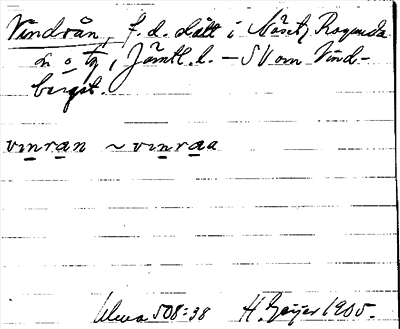 Vindrån, f. d. slått i Näset, Ragunda
sn o tg, Jämtl. l. – SV om Vind-
berget.
vınran ~ vınraa
Ulma 508:38 H. Geijer 1905.